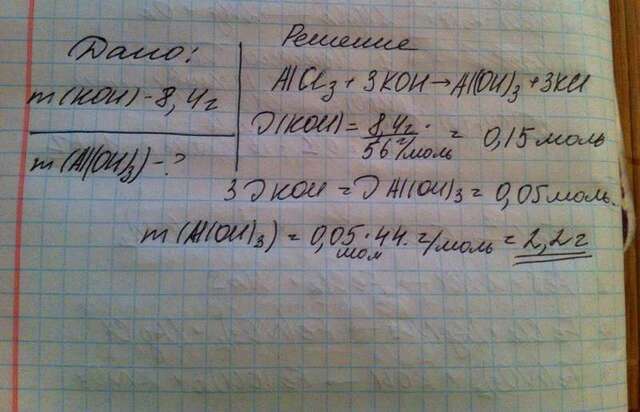 Дано:
m(KOH) - 8,4г
m(Al(OH)3) - ?
Решение
AlCl3 + 3KOH → Al(OH)3 + 3KCl
ν(KOH) = 8,4г / 56 г/моль = 0,15 моль
3 ν KOH = ν Al(OH)3 = 0,05 моль.
m(Al(OH)3) = 0,05 мол · 44 г/моль = 2,2г